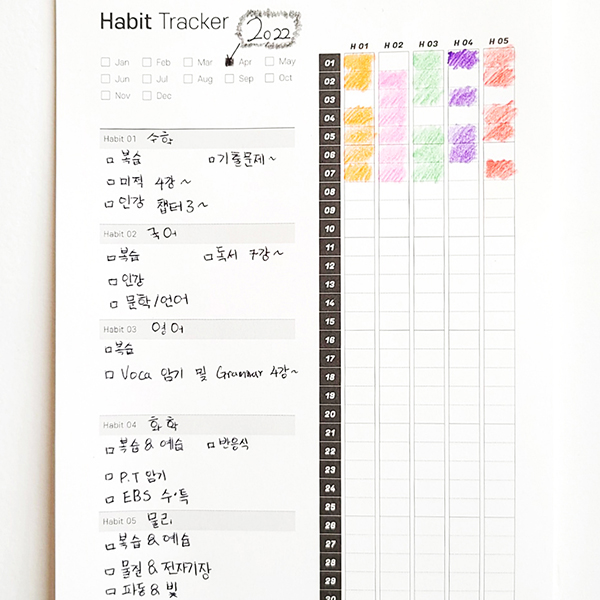 Habit Tracker 2022
Jan Feb Mar Apr May
Jun Jul Aug Sep Oct
Nov Dec
Habit 01 수학
복습 기출문제~
미적 4강~
인강 챕터 3~
Habit 02 국어
복습 독서 7강~
인강
문학/언어
Habit 03 영어
복습
Voca 암기 및 Grammar 4강~
Habit 04 화학
복습 & 예습 반응식
P.T 암기
EBS 수·특
Habit 05 물리
복습 & 예습
물질 & 전자기장
파동 & 빛
H 01 H 02 H 03 H 04 H 05
01
02
03
04
05
06
07
08
09
10
11
12
13
14
15
16
17
18
19
20
21
22
23
24
25
26
27
28
29
30